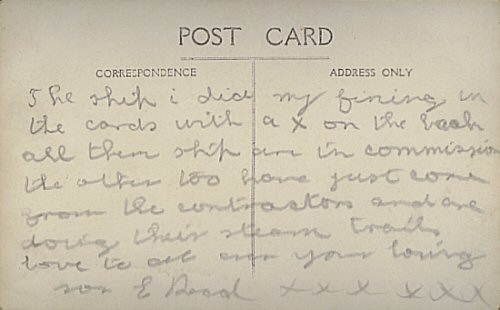 POST CARD
CORRESPONDENCE ADDRESS ONLY
The ship i did my fining in
the cards with a X on the back
all them ship are in commission
the other too have just come
from the contractors and are
doing their steam trails
love to all from your loving
son E X X X X X X